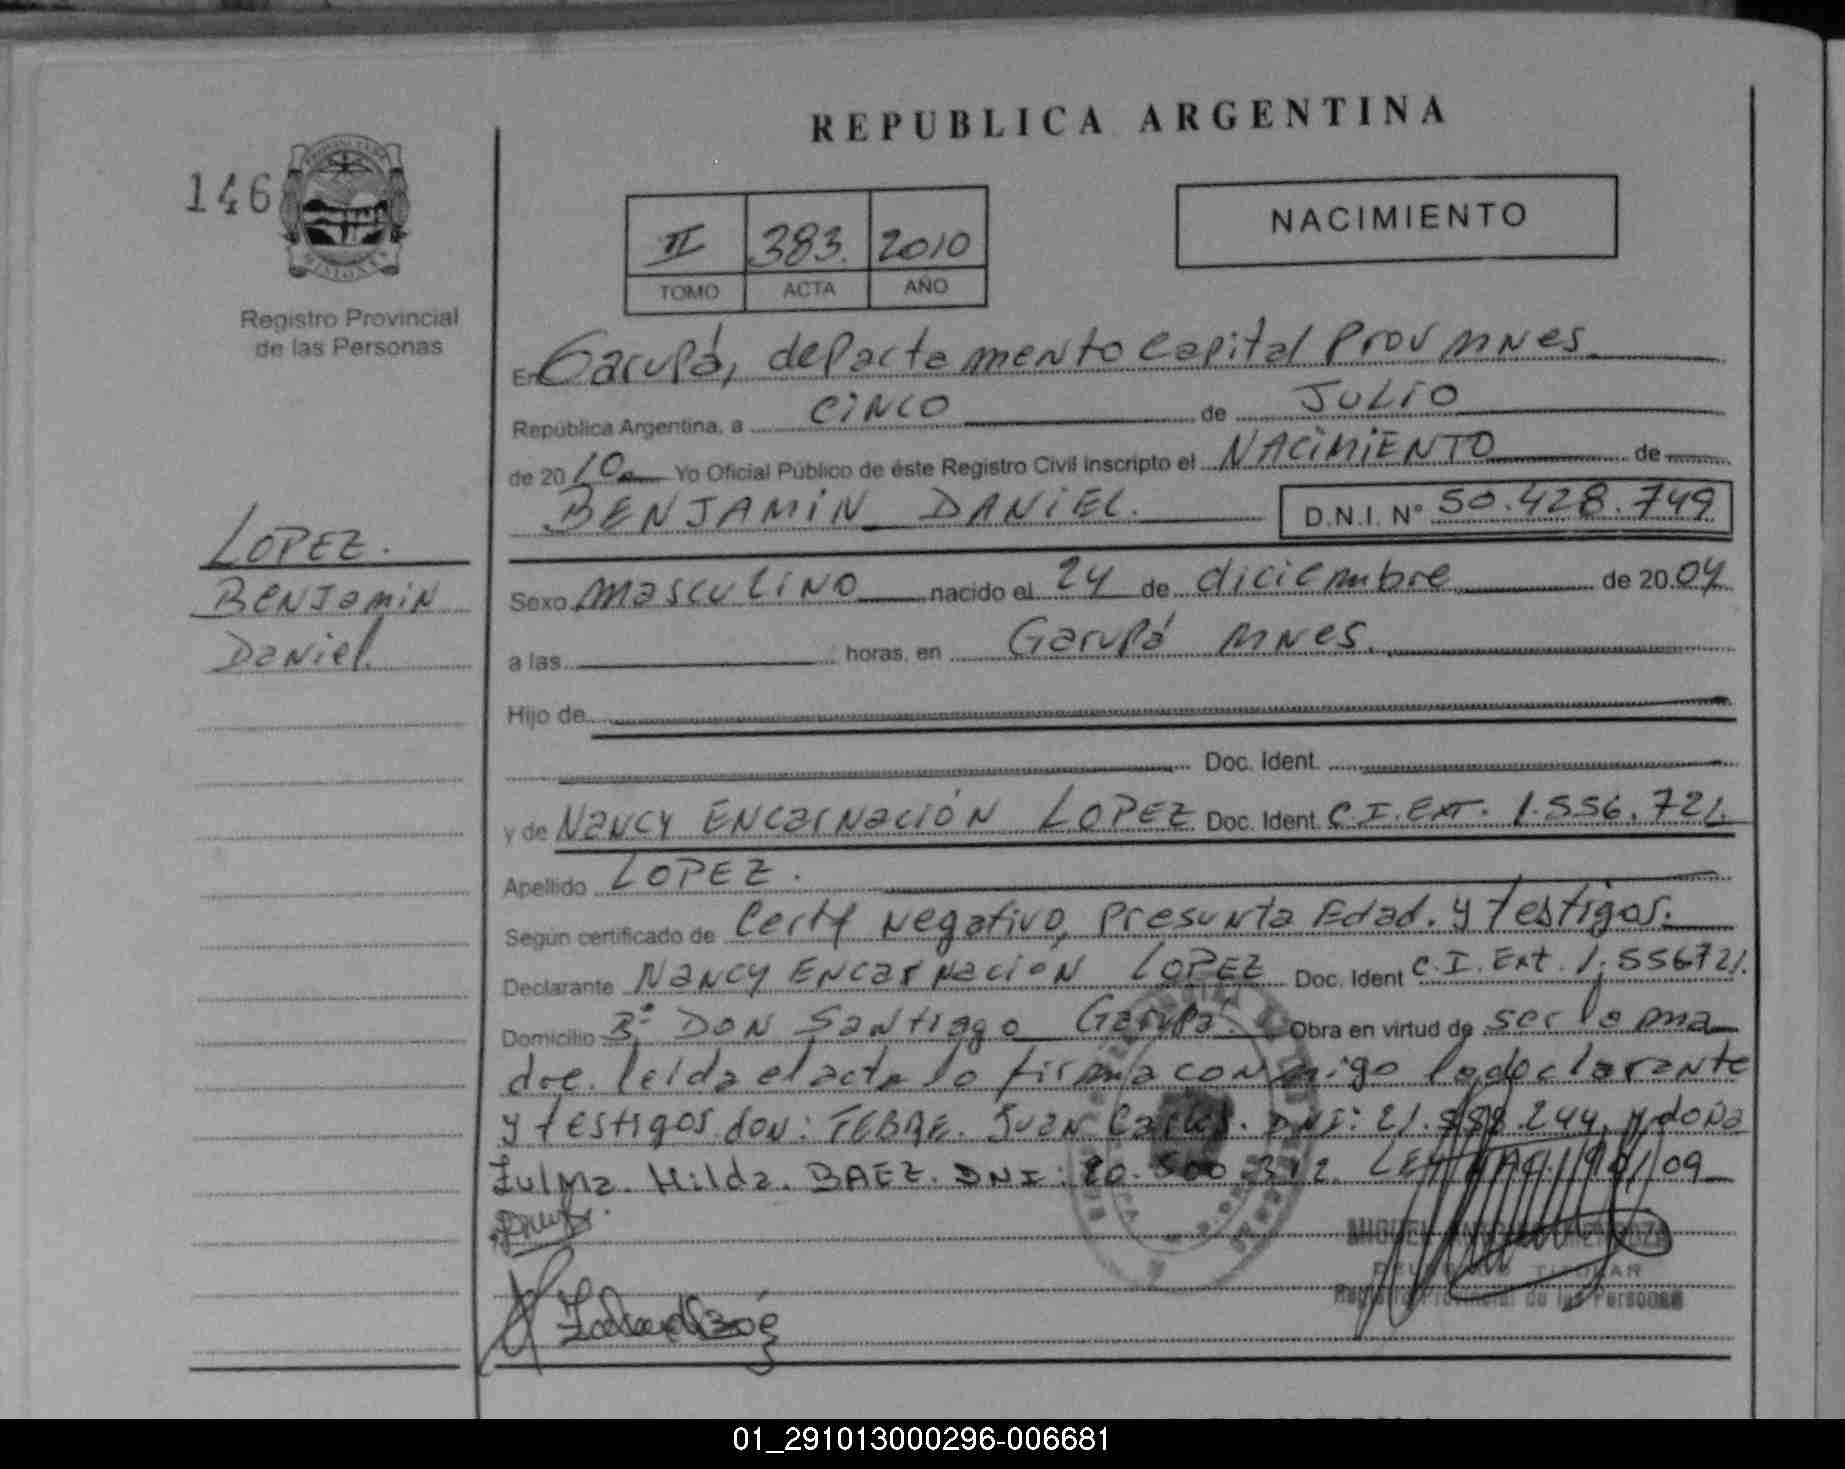 REPUBLICA ARGENTINA
146
NACIMIENTO
II 383. 2010
TOMO ACTA AÑO
Registro Provincial
de las Personas
En Garupá, departamento Capital Prov Mnes.
República Argentina, a CINCO de JULIO
de 20 10. Yo Oficial Público de éste Registro Civil inscripto el NACIMIENTO de
BENJAMIN DANIEL. D.N.I. N° 50.428.749
LOPEZ.
BENJamiN
Daniel.
Sexo masculino nacido el 24 de diciembre de 20 04
a las horas, en Garupá mnes.
Hijo de
Doc. Ident.
y de Nancy Encarnación LOPEZ Doc. Ident. C.I.Ext. 1.556.721.
Apellido LOPEZ.
Según certificado de Certf negativo, Presunta Edad. y testigos.
Declarante Nancy Encarnación LOPEZ Doc. Ident C.I. Ext. 1.556721.
Domicilio B° Don Santiago Garupá. Obra en virtud de ser la ma
dre. leida el acta lo firma conmigo la declarante
y testigos don: TEBRE. Juan Carlos. DNI: 21. .244. y doña
Zulma. Hilda. BAEZ. DNI: 20.500.312. 09
DELEGADO TITULAR
Registro Provincial de las Personas
01_291013000296-006681